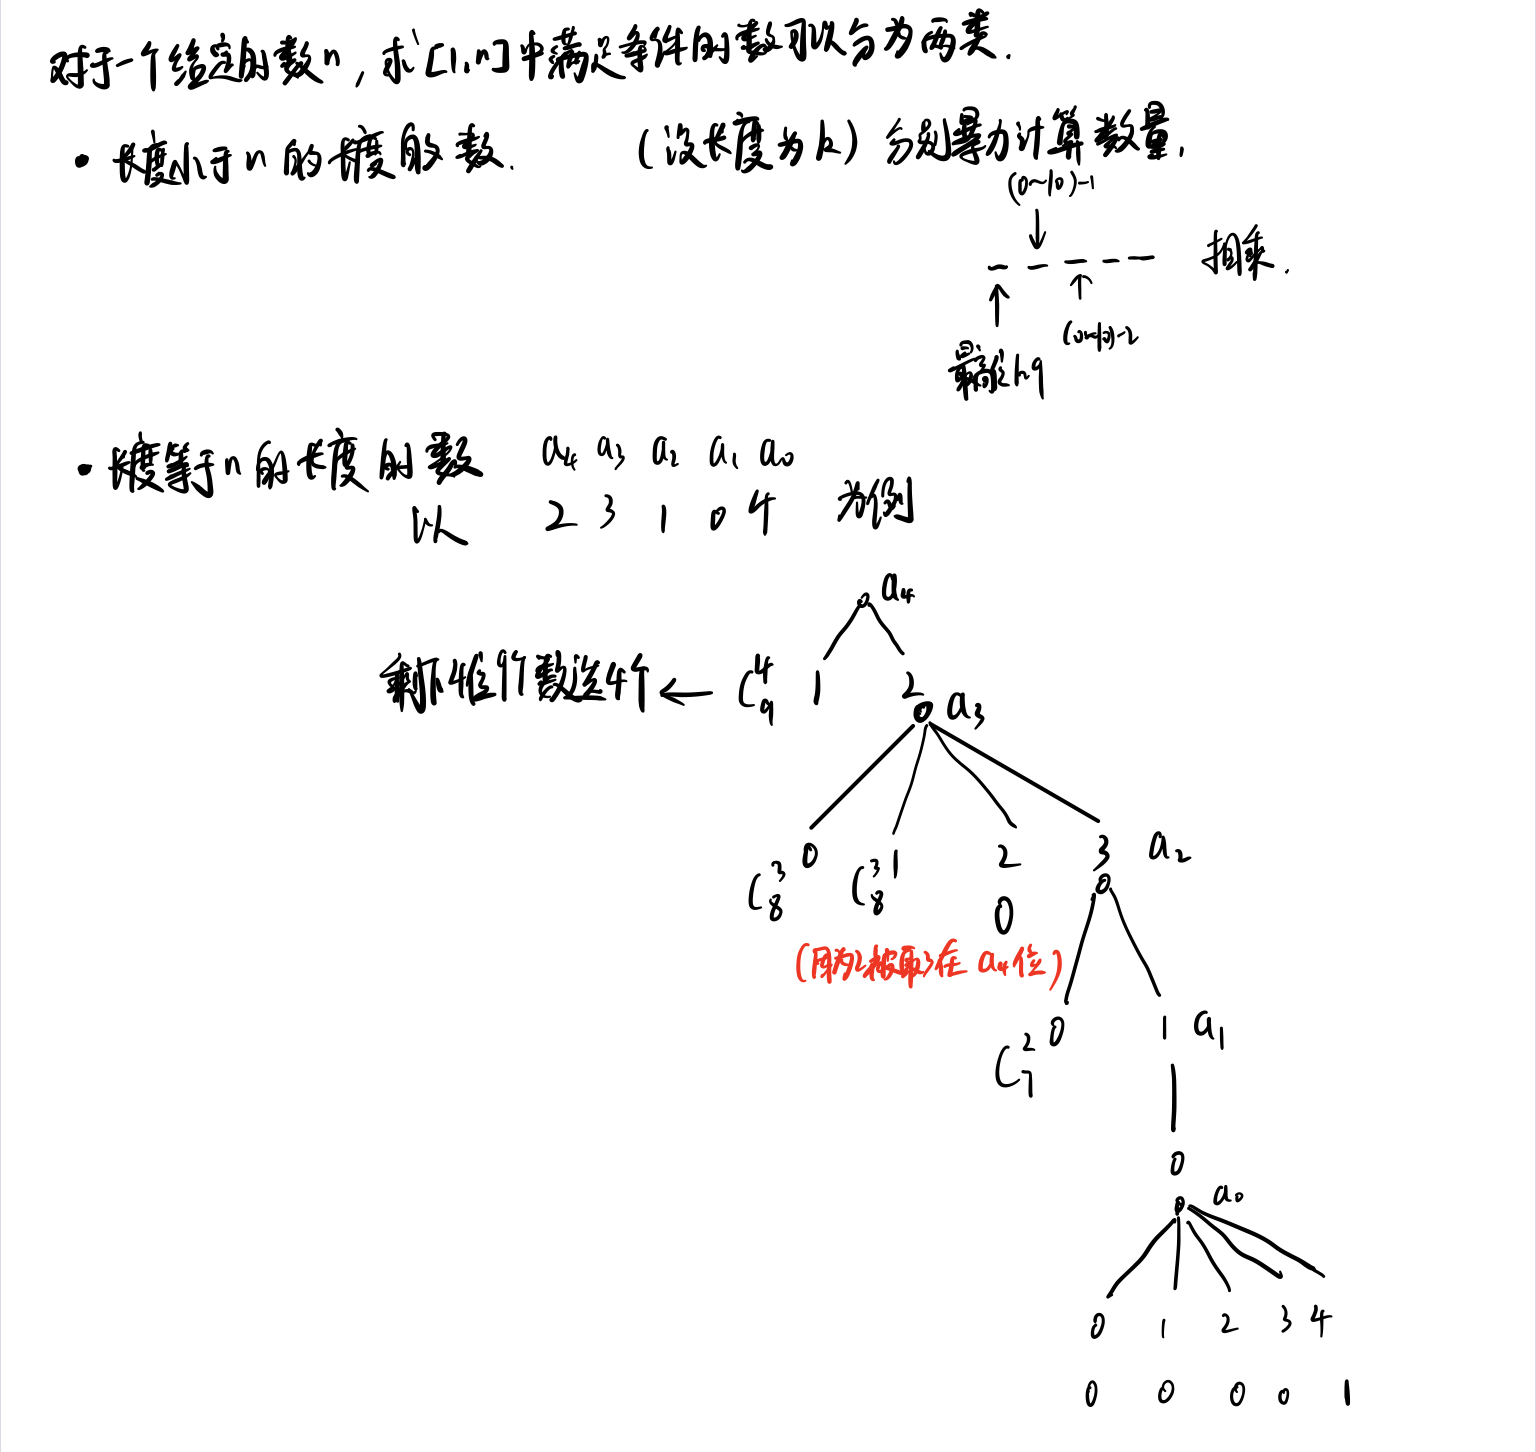 对于一个给定的数n，求[1,n]中满足条件的数可以分为两类.
• 长度小于n的长度的数. (设长度为k) 分别暴力计算数量,
(0~10)-1
相乘.
(0~10)-2
最高位1~9
• 长度等于n的长度的数 a4 a3 a2 a1 a0
以 2 3 1 0 4 为例
a4
剩下4位9个数选4个 ← C_9^4 1 2
a3
0 1 2 3 a2
C_8^3 C_8^3 0
(因为2被取了在a4位)
0 1 a1
C_7^2
0
a0
0 1 2 3 4
0 0 0 0 1